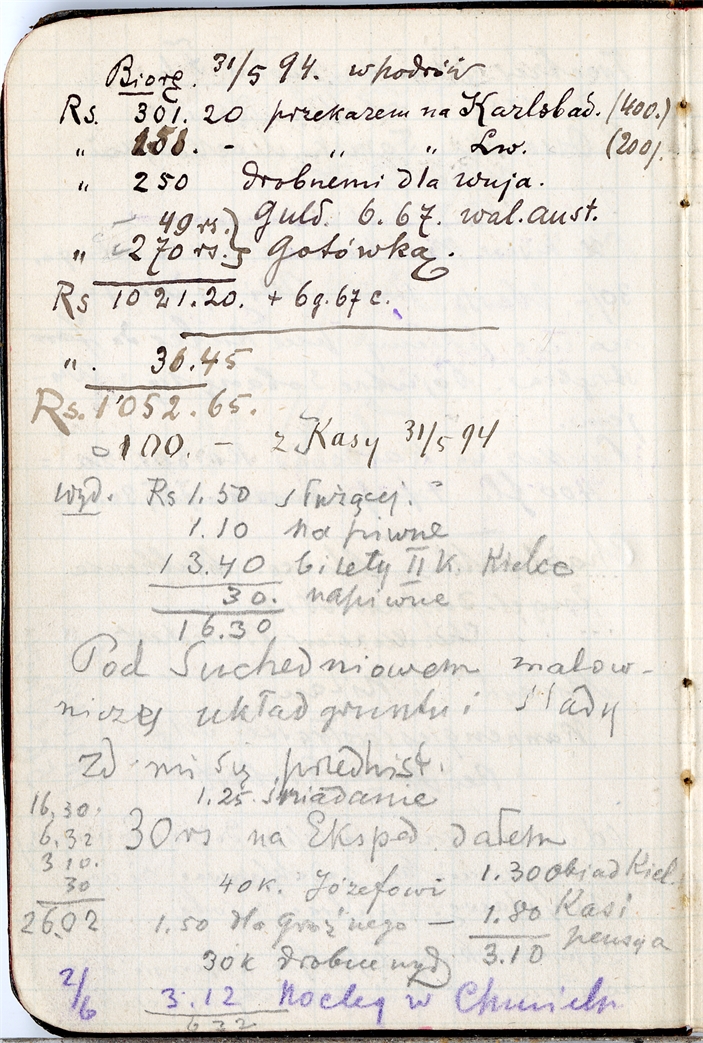 Biorę 31/5 94. w podróż
Rs. 301.20 przekazem na Karlsbad. (400.)
" 151. - " " Lw. (200).
" 250 drobnemi dla wuja.
49 rs. } Guld. 6.67. wal. aust.
" 270 rs. } Gotówką.
Rs 1021.20. + 6g. 67 c.
". 36.45
Rs. 1052.65.
100. - z Kasy 31/5 94
wyd. Rs 1.50 służącej.
1.10 na piwne
13.40 bilety II k. Kielce
30. napiwne
16.30
Pod Suchedniowem malow-
niczej układ gruntu i ślady
zd. mi się przedhist.
1.25. śniadanie
16,30.
6.32 30 rs na Eksped. dałem
3 10.
30 40 k. Józefowi 1.30 Obiad Kiel.
26.02 1.50 dla - 1.80 Kasi
pensya
30k drobne wyd. 3.10
2/6 3.12 Nocleg w Chmieln
6 32